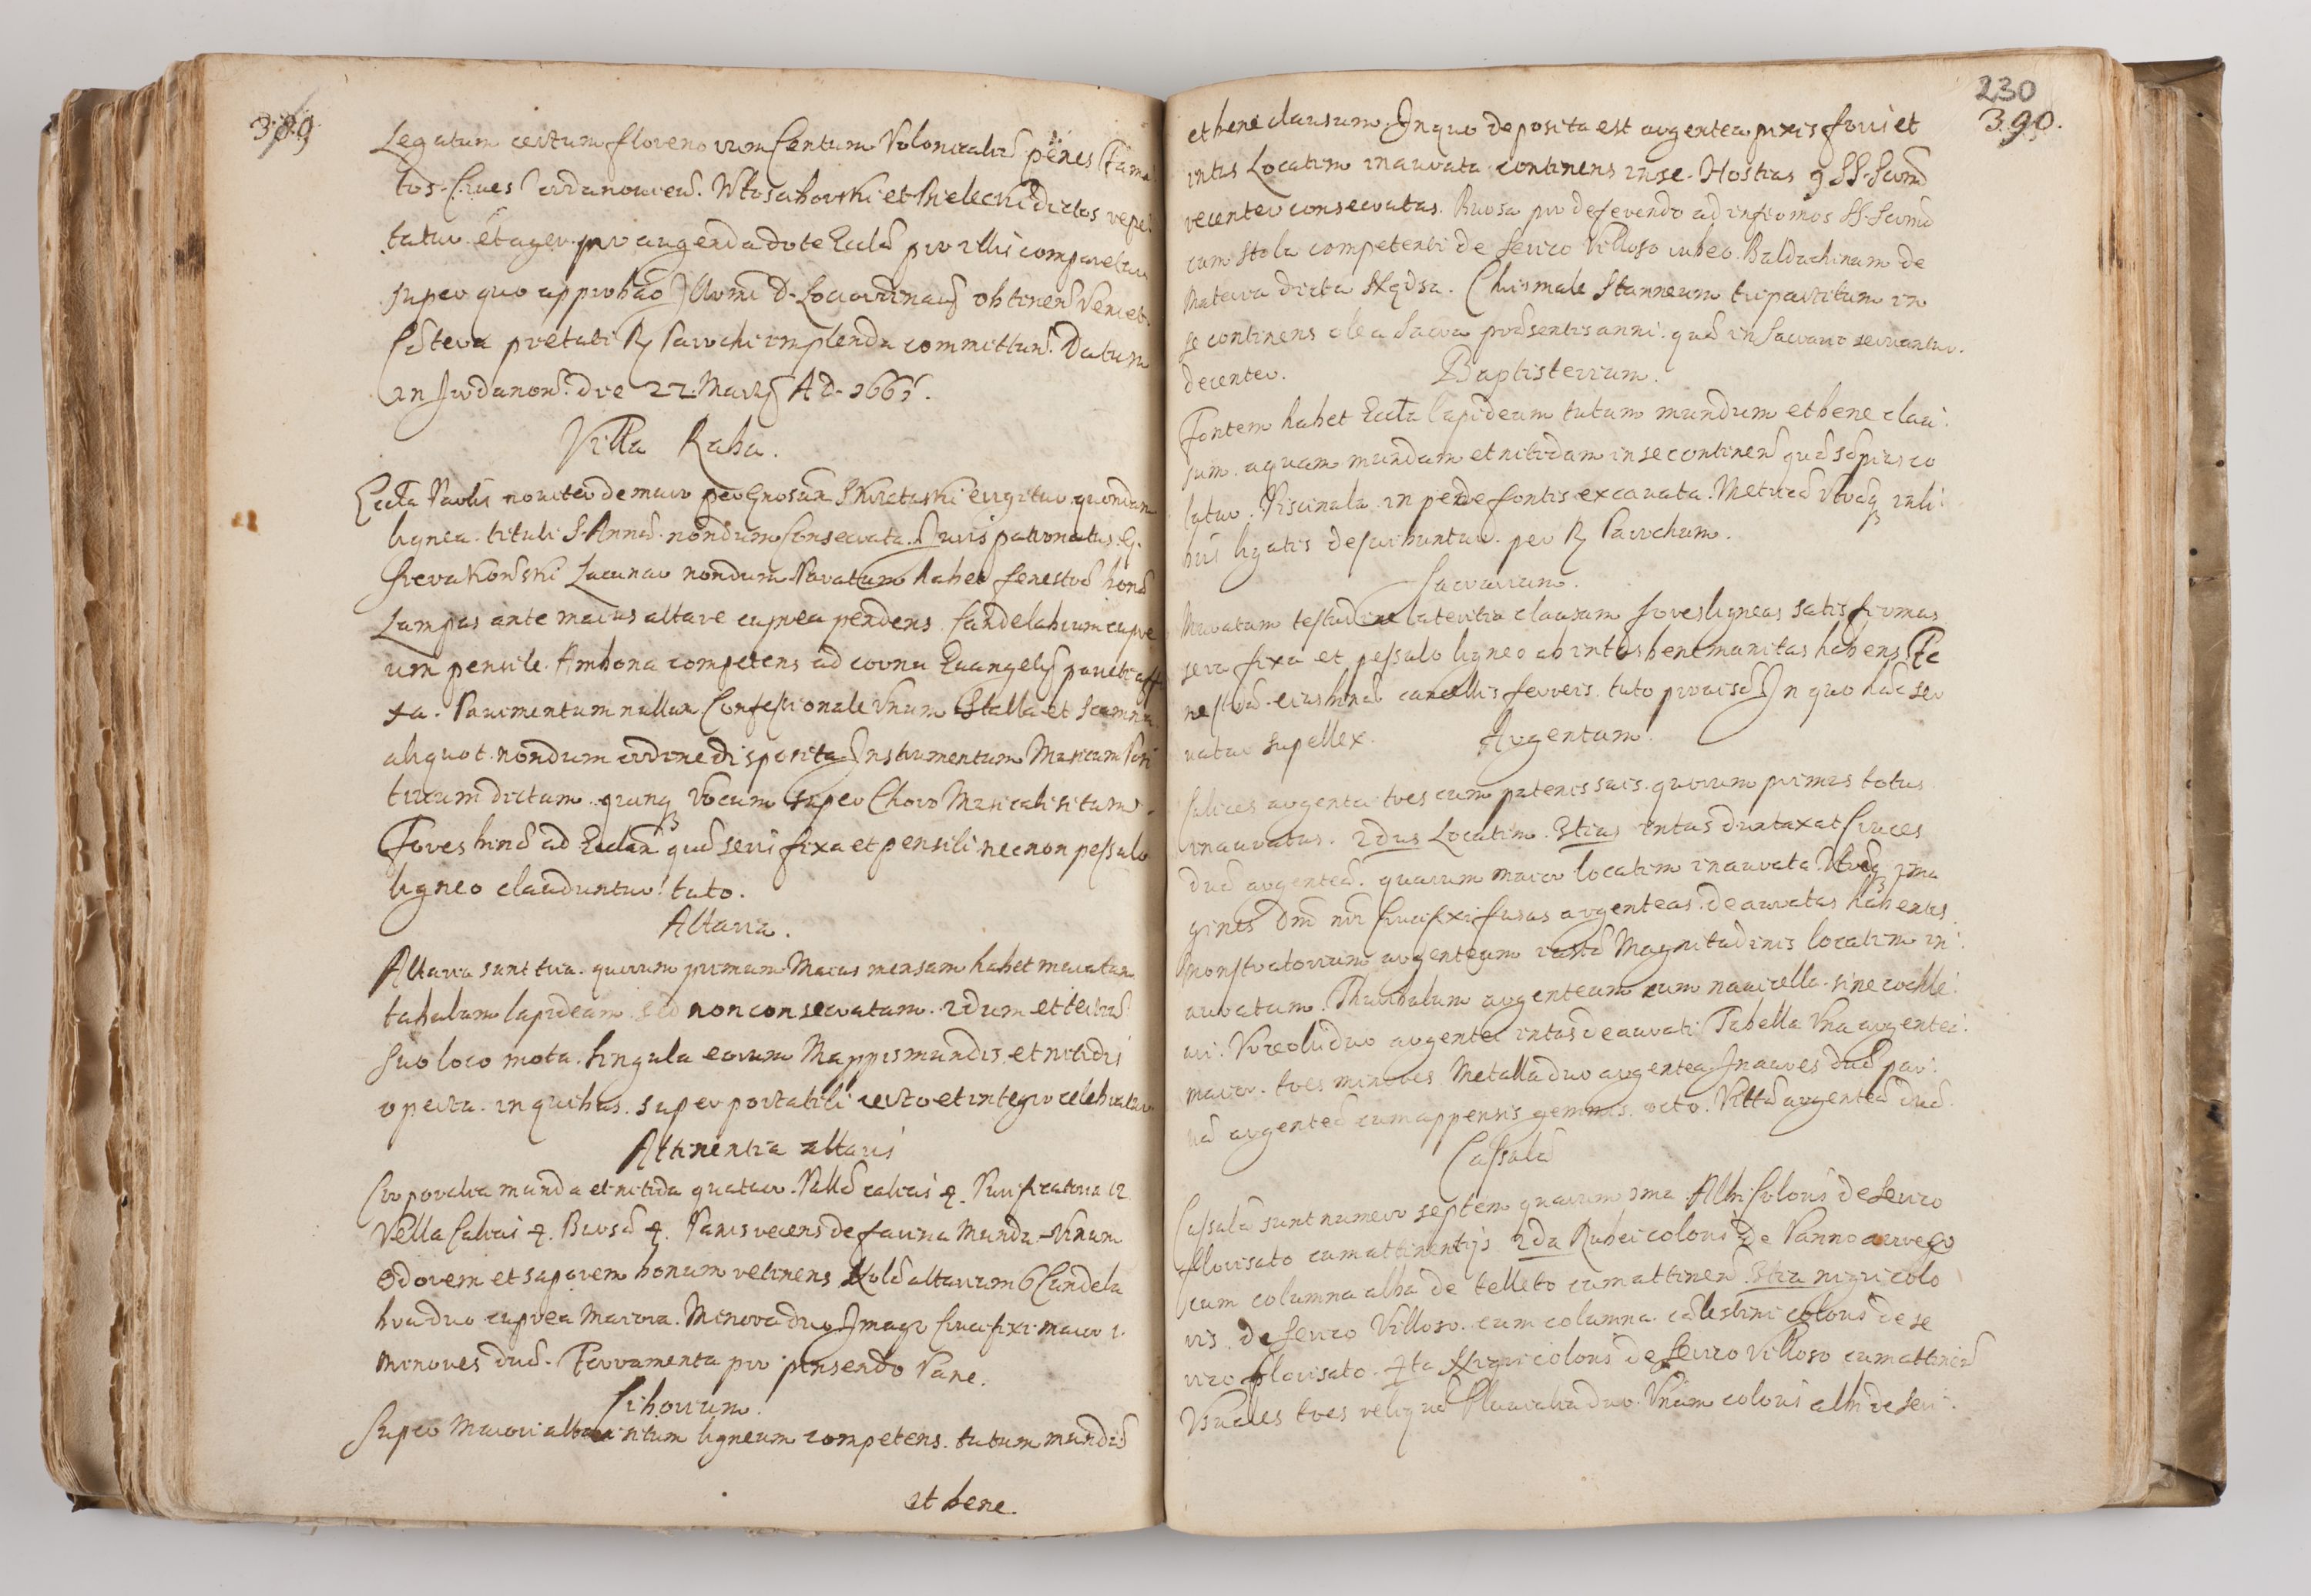 389
Legatum certum florenorum Centum Polonicaliũ penes Fama
tos Cives Jordanovien̄. Włosakowski et Bielecki dictos repe
tatur et ager pro augenda dote Eccl̃æ pro illis comparetur
super quo approba͠o Illr̃mi D. Loci Ordinarij obtinen̄ veniet.
Cætera prætacti R. Parochi implenda committun̄. Datum
in Jordanow. die 22 Martij A D. 166
Villa Raba.
Eccl̃a Parlis noviter de muro per Gnosum erigitur quondam
lignea. tituli S. Annæ. nondum Consecrata. Juris patronatus G.
Lacunar nondum Paratum habet fenestræ bonæ
Lampas ante maius altare cuprea pendens. Candelabrum cupre
um pensile. Ambona competens ad cornu Evangelij parieti aff
xa. Pavimentum nullum Confessionale Unum Stalla et scamna
aliquot. nondum ordine disposita Instrumentum Musicum Posi
tivum dictum. quinq vocum super Choro Musicali situm.
Fores binæ ad Eccl̃am quæ seri fixa et pensili necnon pessulo
ligneo clauduntur tuto.
Altaria.
Altaria sunt tria. quorum primum Maius mensam habet muratam
tabulam lapideam sed non consecratam. 2dum et tertiũ
suo loco mota. singula eorum Mappis mundis et nitidis
operta. in quibus super portatili certo et integro celebratur
Attinentia altaris
Corporalia munda et nitida quatuor. Pallæ calicis 4. Purificatoria 12
Vella Calicis 4. Bursæ 4. Panis recens de farina Munda Vinum
Odorem et saporem bonum retinens altarium 6 Candela
bra duo cuprea Maiora. Minora duo Imago Crucifixi maior 1.
Minores duæ. Ferramenta pro pinsendo Pane.
Ciborium.
Super Maiori altari situm ligneum competens. tutum mundũ
et bene.
230
390.
et bene clausum. In quo deposita est argentea pixis foris et
intus Locatim inaurata continens in se. Hostias SS. Sacra͠
recenter consecratas. Bursa pro deferendo ad infirmos SS. Sacra͠
cum stola competenti de serico Villoso rubeo. Baldachinum de
Materia dicta. Chrismale Stanneum tripartitum in
se continens olea Sacra præsentis anni. quæ in Sacrario servantur.
decenter.
Baptisterium.
Fontem habet Eccl̃a lapideum tutum mundum et bene clau
sum. aquam mundam et nitidam in se continen̄ quæ sæpius co
latur. Piscinula in pede fontis excavata. Metricæ utræq in li
bris ligatis describuntur. per R. Parochum.
Sacrarium.
Muratum testudine lateritia clausum fores ligneas satis firmas
sera fixa et pessulo ligneo ab intus bene munitas habens Fe
nestræ eius binæ cancellis ferreis. tuto provisæ In quo hæc ser
vatur supellex.
Argentum.
Calices argentei tres cum patenis suis. quorum primus totus
inauratus. 2dus Locatim. 3tius intus duntaxat Cruces
duæ argenteæ. quarum maior locatim inaurata Utræq ima
gines Dñi ñri Crucifixi fusas argenteas. deauratas habentes.
Monstratorium argenteum iustæ Magnitudinis locatim in
auratum. Thuribulum argenteum cum navicella. sine cochle
ari. Urceoli duo argentei intus deaurati Tabella Una argentei
maior. tres minores. Metalla duo argentea Inaures duæ par
væ argenteæ cum appensis gemmis. octo. Vittæ argenteæ duæ.
Casulæ
Casulæ sunt numero septem quarum 1ma Albi Coloris de Serico
florisato cum attinentijs. 2da Rubei coloris de Panno aureo
cum columna alba de telleto cum attinen̄. 3tia nigri colo
ris. de Serico Villoso. cum columna. cælestini coloris de se
rico florisato. 4ta Nigri coloris de Serico Villoso cum attinen̄
Usuales tres reliquæ Pluvialia duo. Unum coloris albi de seri